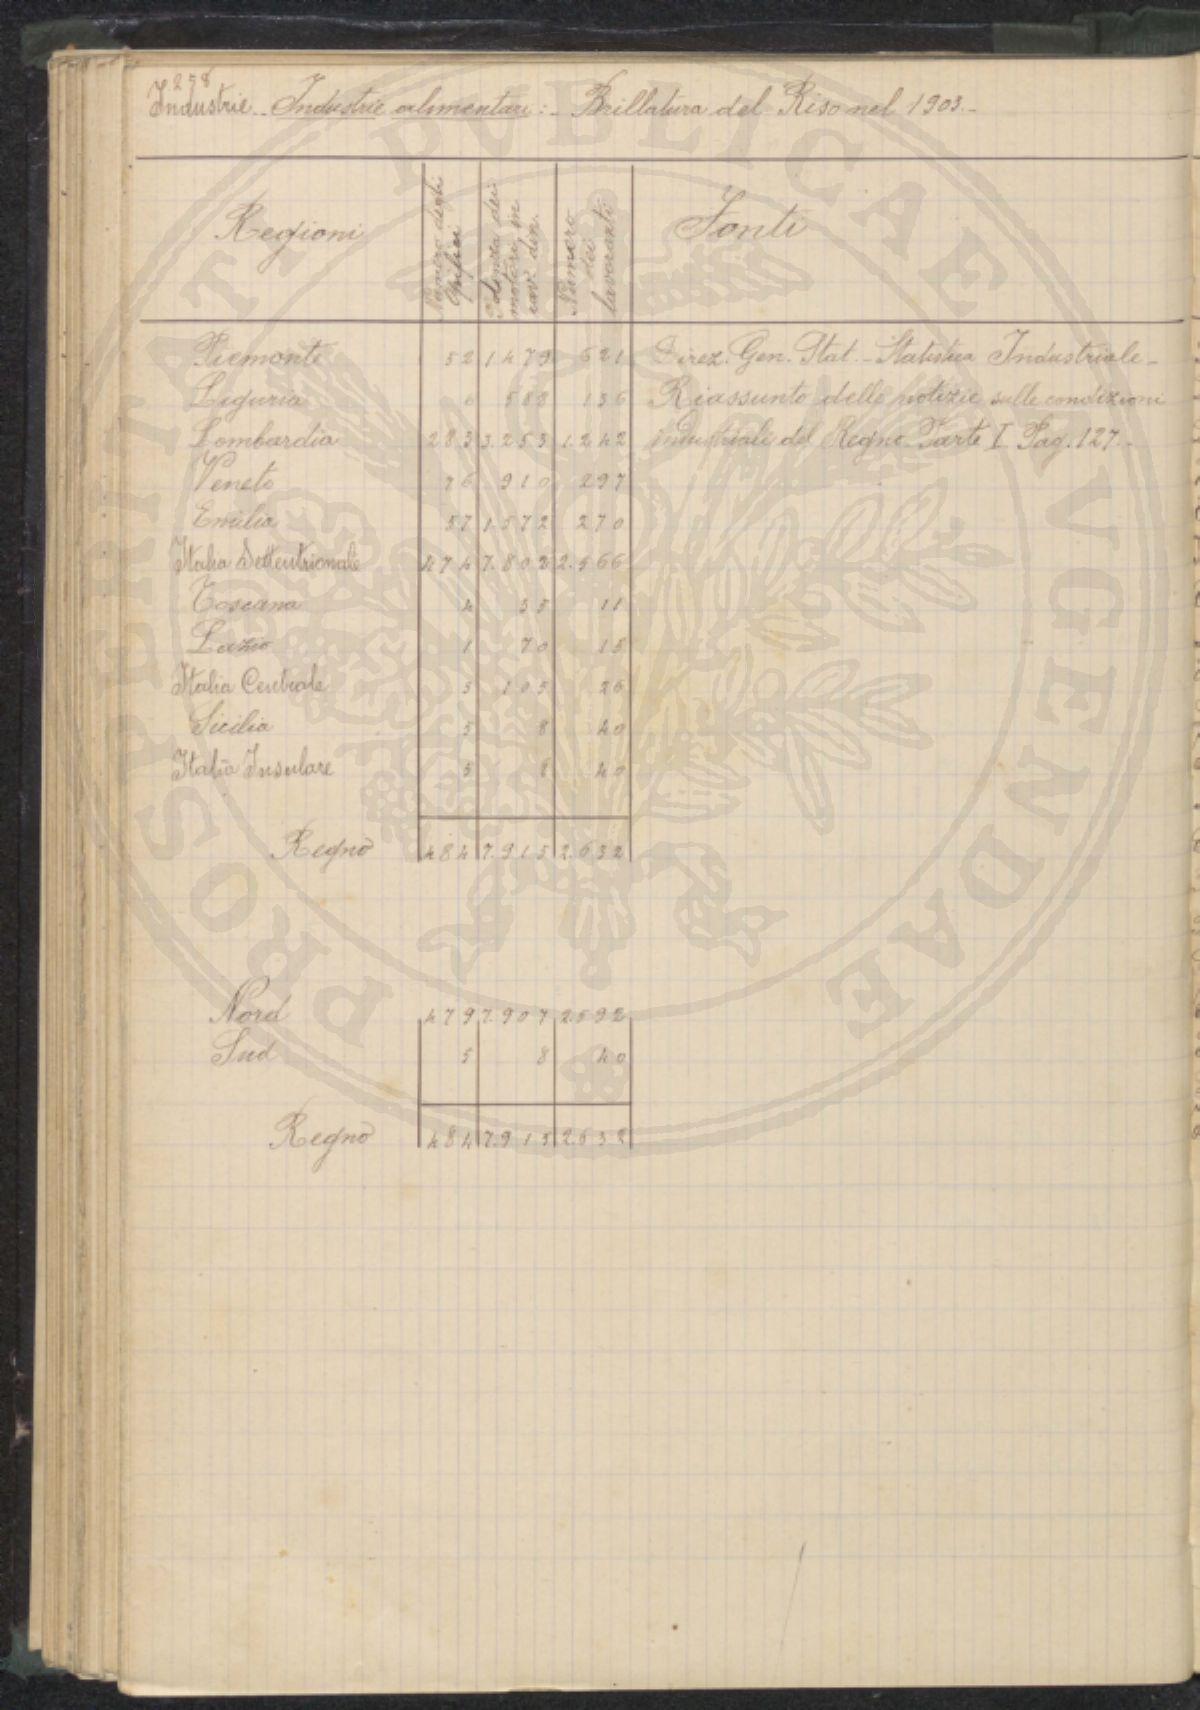 258
Industrie - Industrie alimentari: - Brillatura del Riso nel 1903.-
Regioni | Numero degli Opifici | Potenza dei motori in cav. din. | Numero dei lavoranti | Fonti
Piemonte 52 1479 621 Direz. Gen. Stat. - Statistica Industriale -
Liguria 6 588 136 Riassunto delle notizie sulle condizioni
Lombardia 283 3.253 1.242 industriali del Regno Parte I Pag. 127.-
Veneto 76 910 297
Emilia 57 1.572 270
Italia Settentrionale 474 7.802 2.566
Toscana 4 35 11
Lazio 1 70 15
Italia Centrale 5 105 26
Sicilia 5 8 40
Italia Insulare 5 8 40
Regno 484 7.915 2.632
Nord 479 7.907 2592
Sud 5 8 40
Regno 484 7.915 2.632
PROSPERITATI PUBLICAE AVGENDAE